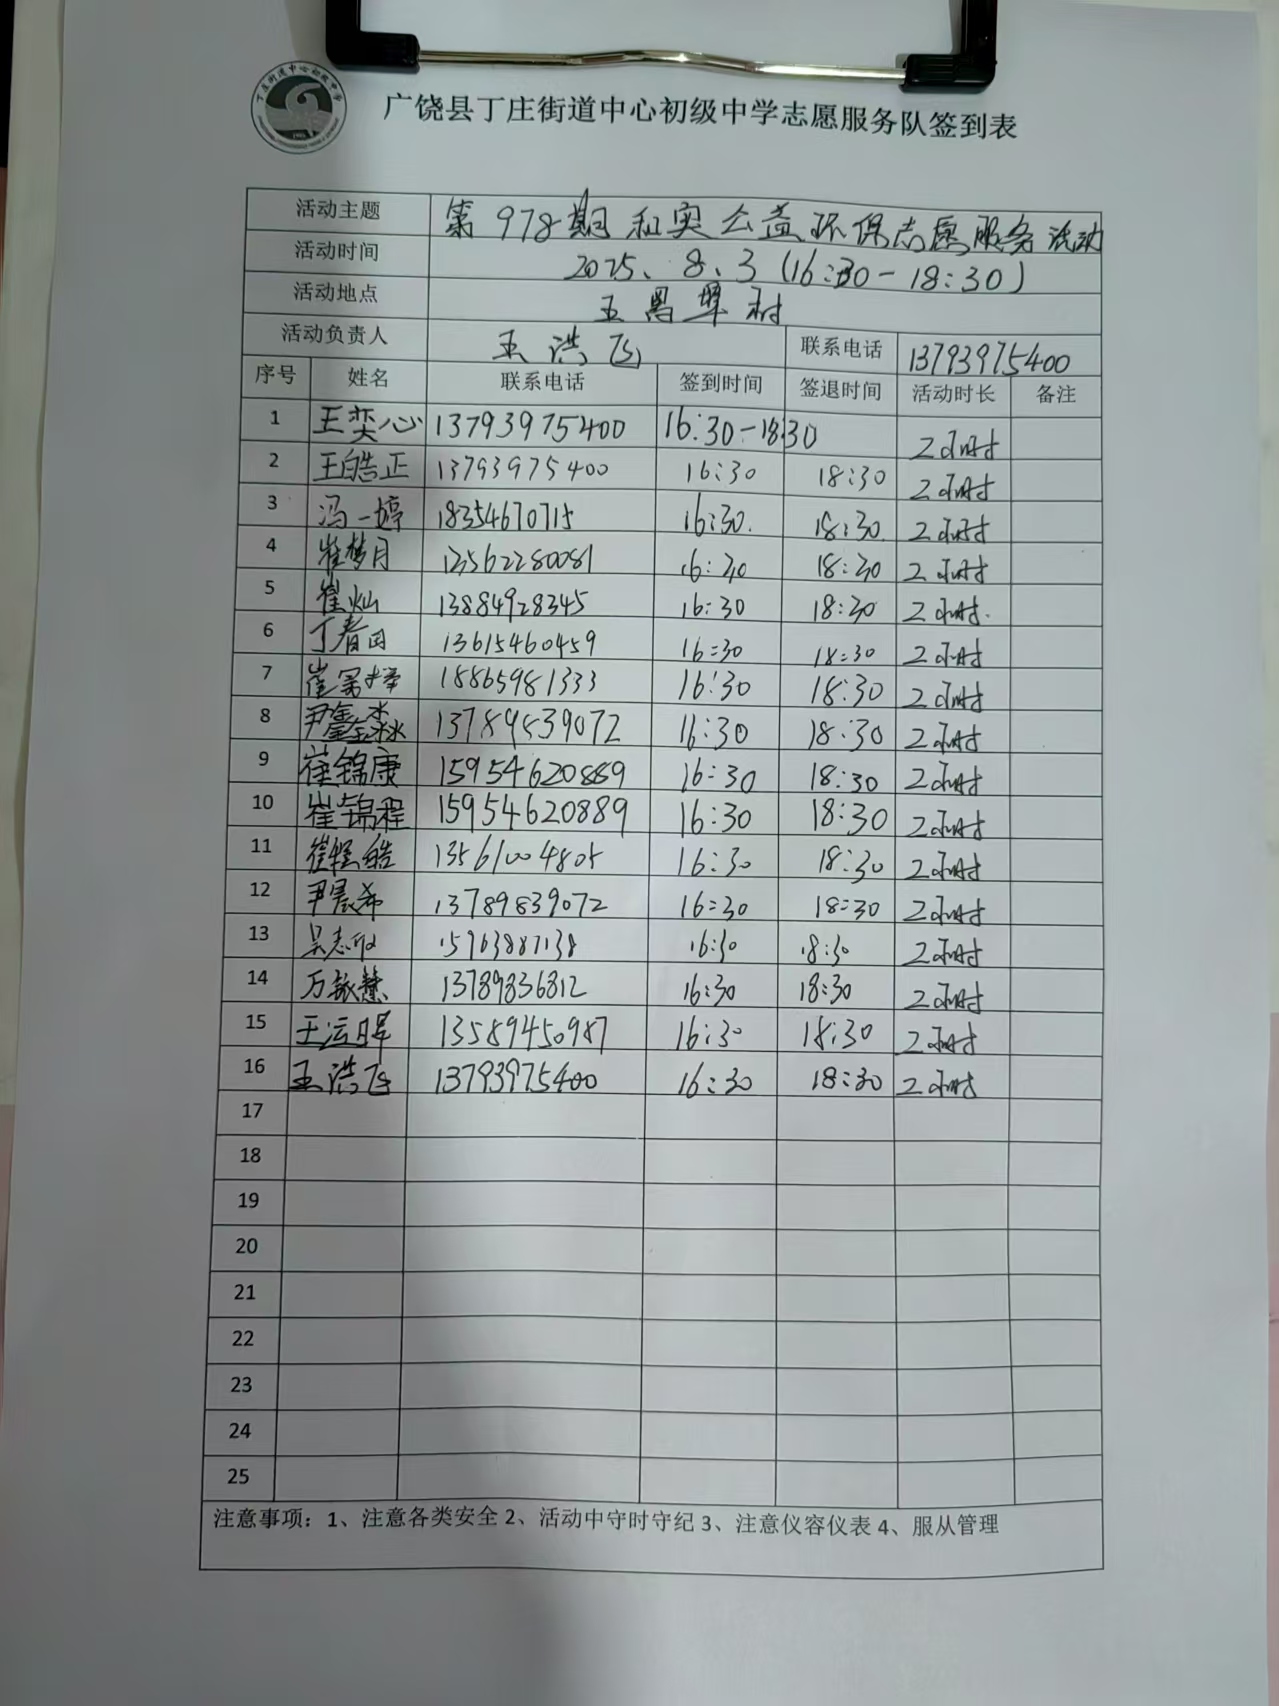 丁庄街道中心初级中学
广饶县丁庄街道中心初级中学志愿服务队签到表
活动主题 第978期和奥公益环保志愿服务活动
活动时间 2025、8、3(16:30-18:30)
活动地点 王 村
活动负责人 王洪飞 联系电话 13793975400
序号 姓名 联系电话 签到时间 签退时间 活动时长 备注
1 王奕心 13793975400 16:30-18:30 2小时
2 王皓正 13793975400 16:30 18:30 2小时
3 冯一婷 18354670715 16:30. 18:30. 2小时
4 崔梦月 13562280081 16:30 18:30 2小时
5 崔灿 13884928345 16:30 18:30 2小时.
6 丁春田 13615460459 16:30 18:30 2小时
7 崔 18865981333 16:30 18:30 2小时
8 尹鑫淼 13789839072 16:30 18:30 2小时
9 崔锦康 15954620889 16:30 18:30 2小时
10 崔锦程 15954620889 16:30 18:30 2小时
11 崔 皓 13561004805 16:30 18:30 2小时
12 尹晨希 13789839072 16:30 18:30 2小时
13 吴志 15963887138 16:30 18:30 2小时
14 万敏慧 13789836812 16:30 18:30 2小时
15 王运晖 13589450987 16:30 18:30 2小时
16 王洪飞 13793975400 16:30 18:30 2小时
17
18
19
20
21
22
23
24
25
注意事项：1、注意各类安全 2、活动中守时守纪 3、注意仪容仪表 4、服从管理